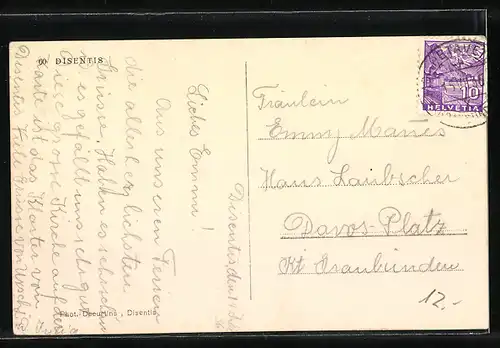 60 DISENTIS
Disentis, den
Liebes Emmi!
Aus unseren Ferien
die allerherzlichsten
Grüsse. Haben es sehr schön
u. es gefällt uns sehr gut.
Diese grosse Kirche auf der
Karte ist das Kloster von
Disentis. Viele Grüsse von
Phot. Decurtins, Disentis
Fräulein
Emmy Manes
Haus Laubscher
Davos-Platz
Kt Graubünden
10
HELVETIA
12.-